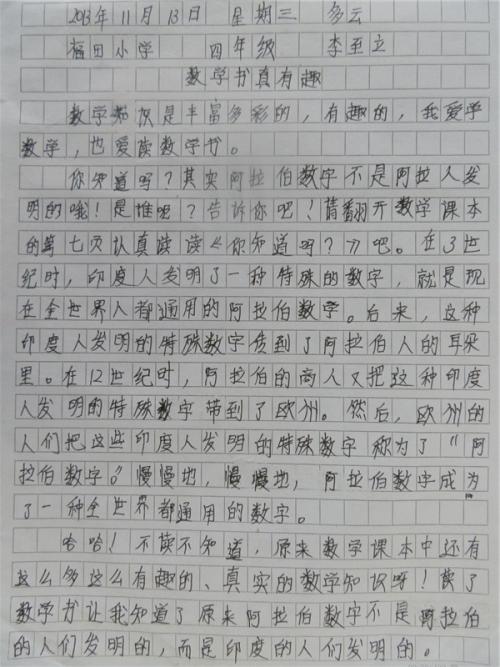 2013年11月13日 星期三 多云
福田小学 四年级 李至立
数学书真有趣
数学知识是丰富多彩的，有趣的，我爱学
数学，也爱读数学书。
你知道吗？其实阿拉伯数字不是阿拉人发
明的哦！是谁呢？告诉你吧！请翻开数学课本
的第七页认真读读《你知道吗？》吧。在3世
纪时，印度人发明了一种特殊的数字，就是现
在全世界人都通用的阿拉伯数学。后来，这种
印度人发明的特殊数字传到了阿拉伯人的耳朵
里。在12世纪时，阿拉伯的商人又把这种印度
人发明的特殊数字带到了欧洲。然后，欧洲的
人们把这些印度人发明的特殊数字称为了“阿
拉伯数字”。慢慢地，慢慢地，阿拉伯数字成为
了一种全世界都通用的数字。
哈哈！不读不知道，原来数学课本中还有
这么多这么有趣的、真实的数学知识呀！读了
数学书让我知道了原来阿拉伯数字不是阿拉伯
的人们发明的，而是印度的人们发明的。